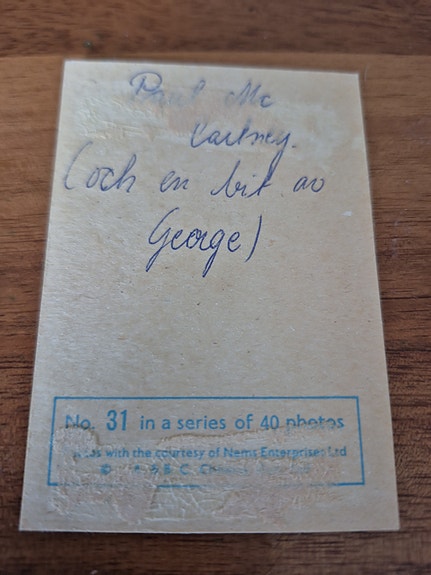 Paul Mc
Cartney.
(och en bit av
George)
No. 31 in a series of 40 photos
with the courtesy of Nems Enterprises Ltd
©